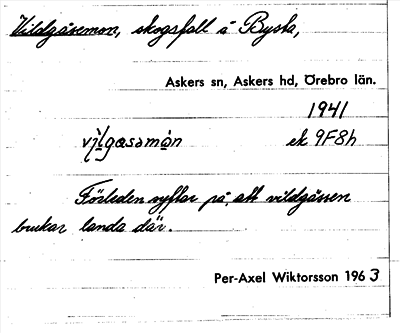 Vildgåsemon, skogsfall å Bysta,
Askers sn, Askers hd, Örebro län.
1941
vįl̀gɑsəmɑ̀n ek 9F8h
Förleden syftar på, att vildgässen
brukar landa där.
Per-Axel Wiktorsson 1963